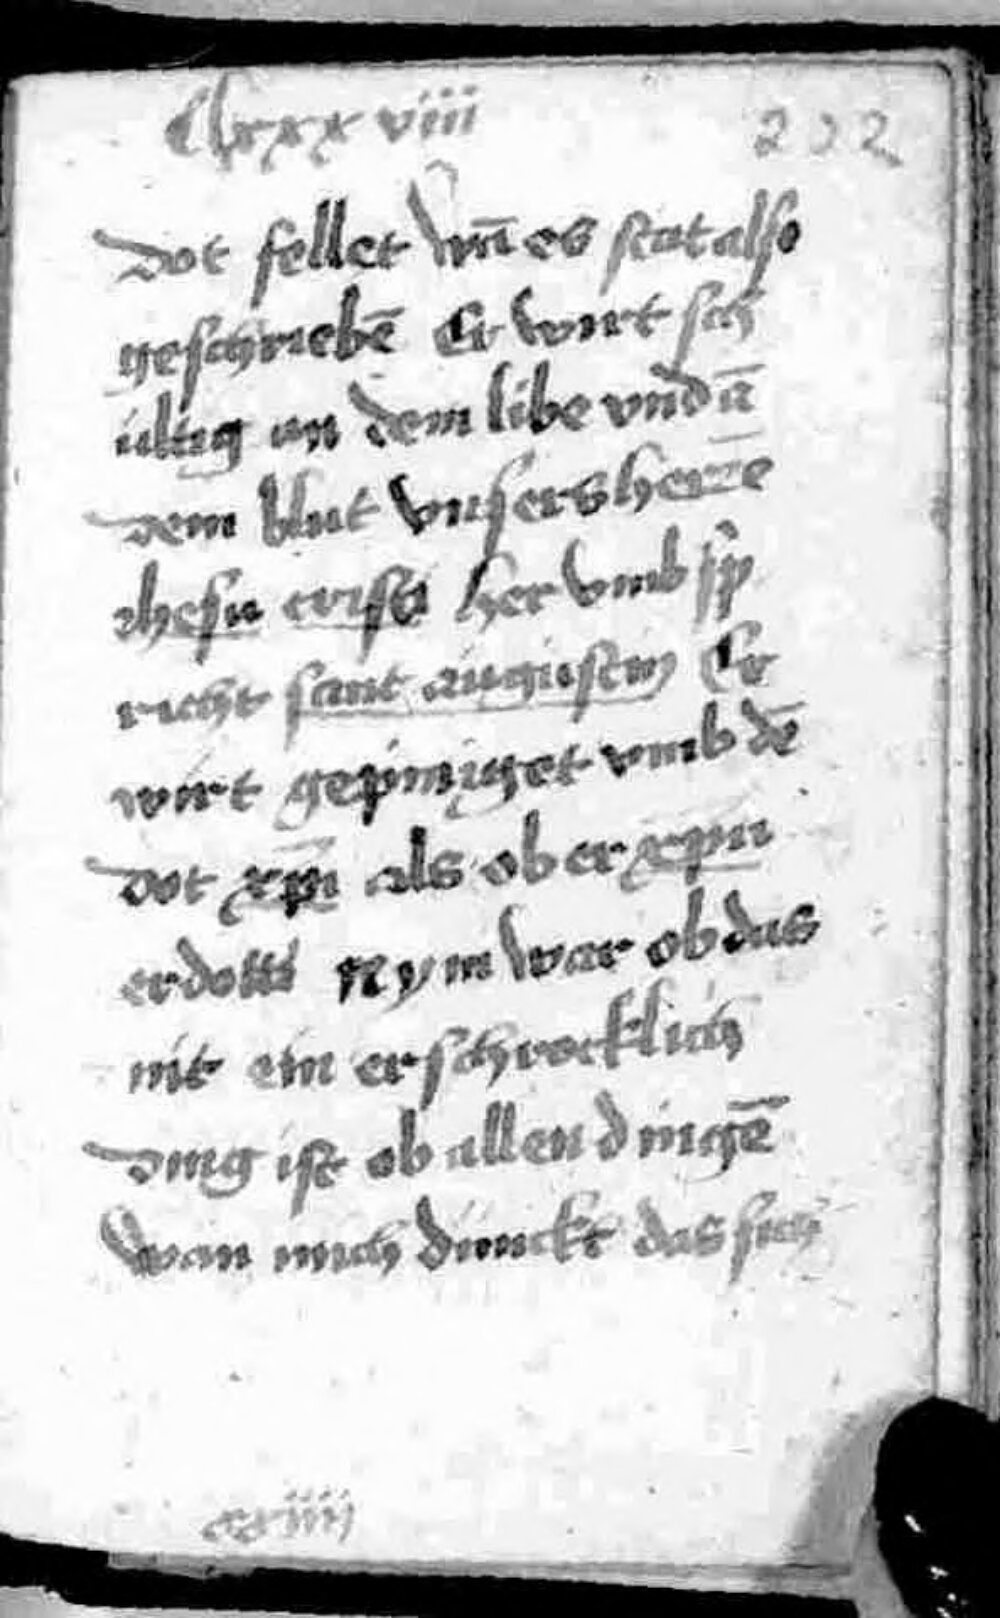 Clxxxviii
202
dot fellet wan̄ es stat also
geschriebē Er wirt sch
ultig an dem libe vnd ā
dem blut vnsers herrē
ihesu cristi her vmb sp
richt sant augustin Er
wirt gepiniget vmb dē
dot xp̄i als ob er xp̄m
er dott Nym war ob das
nit ein erschrocklich
ding ist ob allen dingē
wan mich dunckt das sich
xxiiii